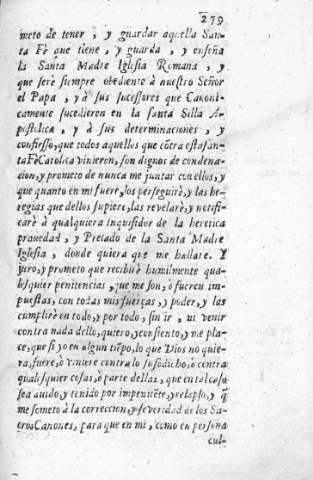 279
meto de tener, y guardar aquella San-
ta Fè que tiene, y guarda, y enseña
la Santa Madre Iglesia Romana, y
que serè siempre obediente à nuestro Señor
el Papa, y à sus sucessores que Canoni-
camente sucedieren en la santa Silla A-
postolica, y à sus determinaciones, y
confiesso, que todos aquellos que cõtra esta sãn-
ta Fè Catolica vinieren, son dignos de condena-
cion, y prometo de nunca me juntar con ellos, y
que quanto en mi fuere, los perseguirè, y las he-
regias que dellos supiere, las revelarè, y notifi-
carè à qualquiera Inquisidor de la heretica
pravedad, y Prelado de la Santa Madre
Iglesia, donde quiera que me hallare. Y
juro, y prometo que recibirè humilmente qua-
lesquier penitencias, que me son, o fueren im-
puestas, con todas mis fuerças, y poder, y las
cumplirè en todo, y por todo, sin ir, ni venir
contra nada dello, quiero, y consiento, y me pla-
ce, que si yo en algun tiẽpo, lo que Dios no quie-
ra, fuere, ò viniere contra lo susodicho, ò contra
qualesquier cosas, ò parte dellas, que en tal caso
sea avido, y tenido por impenitẽte, y relapso, y q̃
me someto à la correccion, y severidad de los Sa-
cros Canones, para que en mi, como en persona
cul-